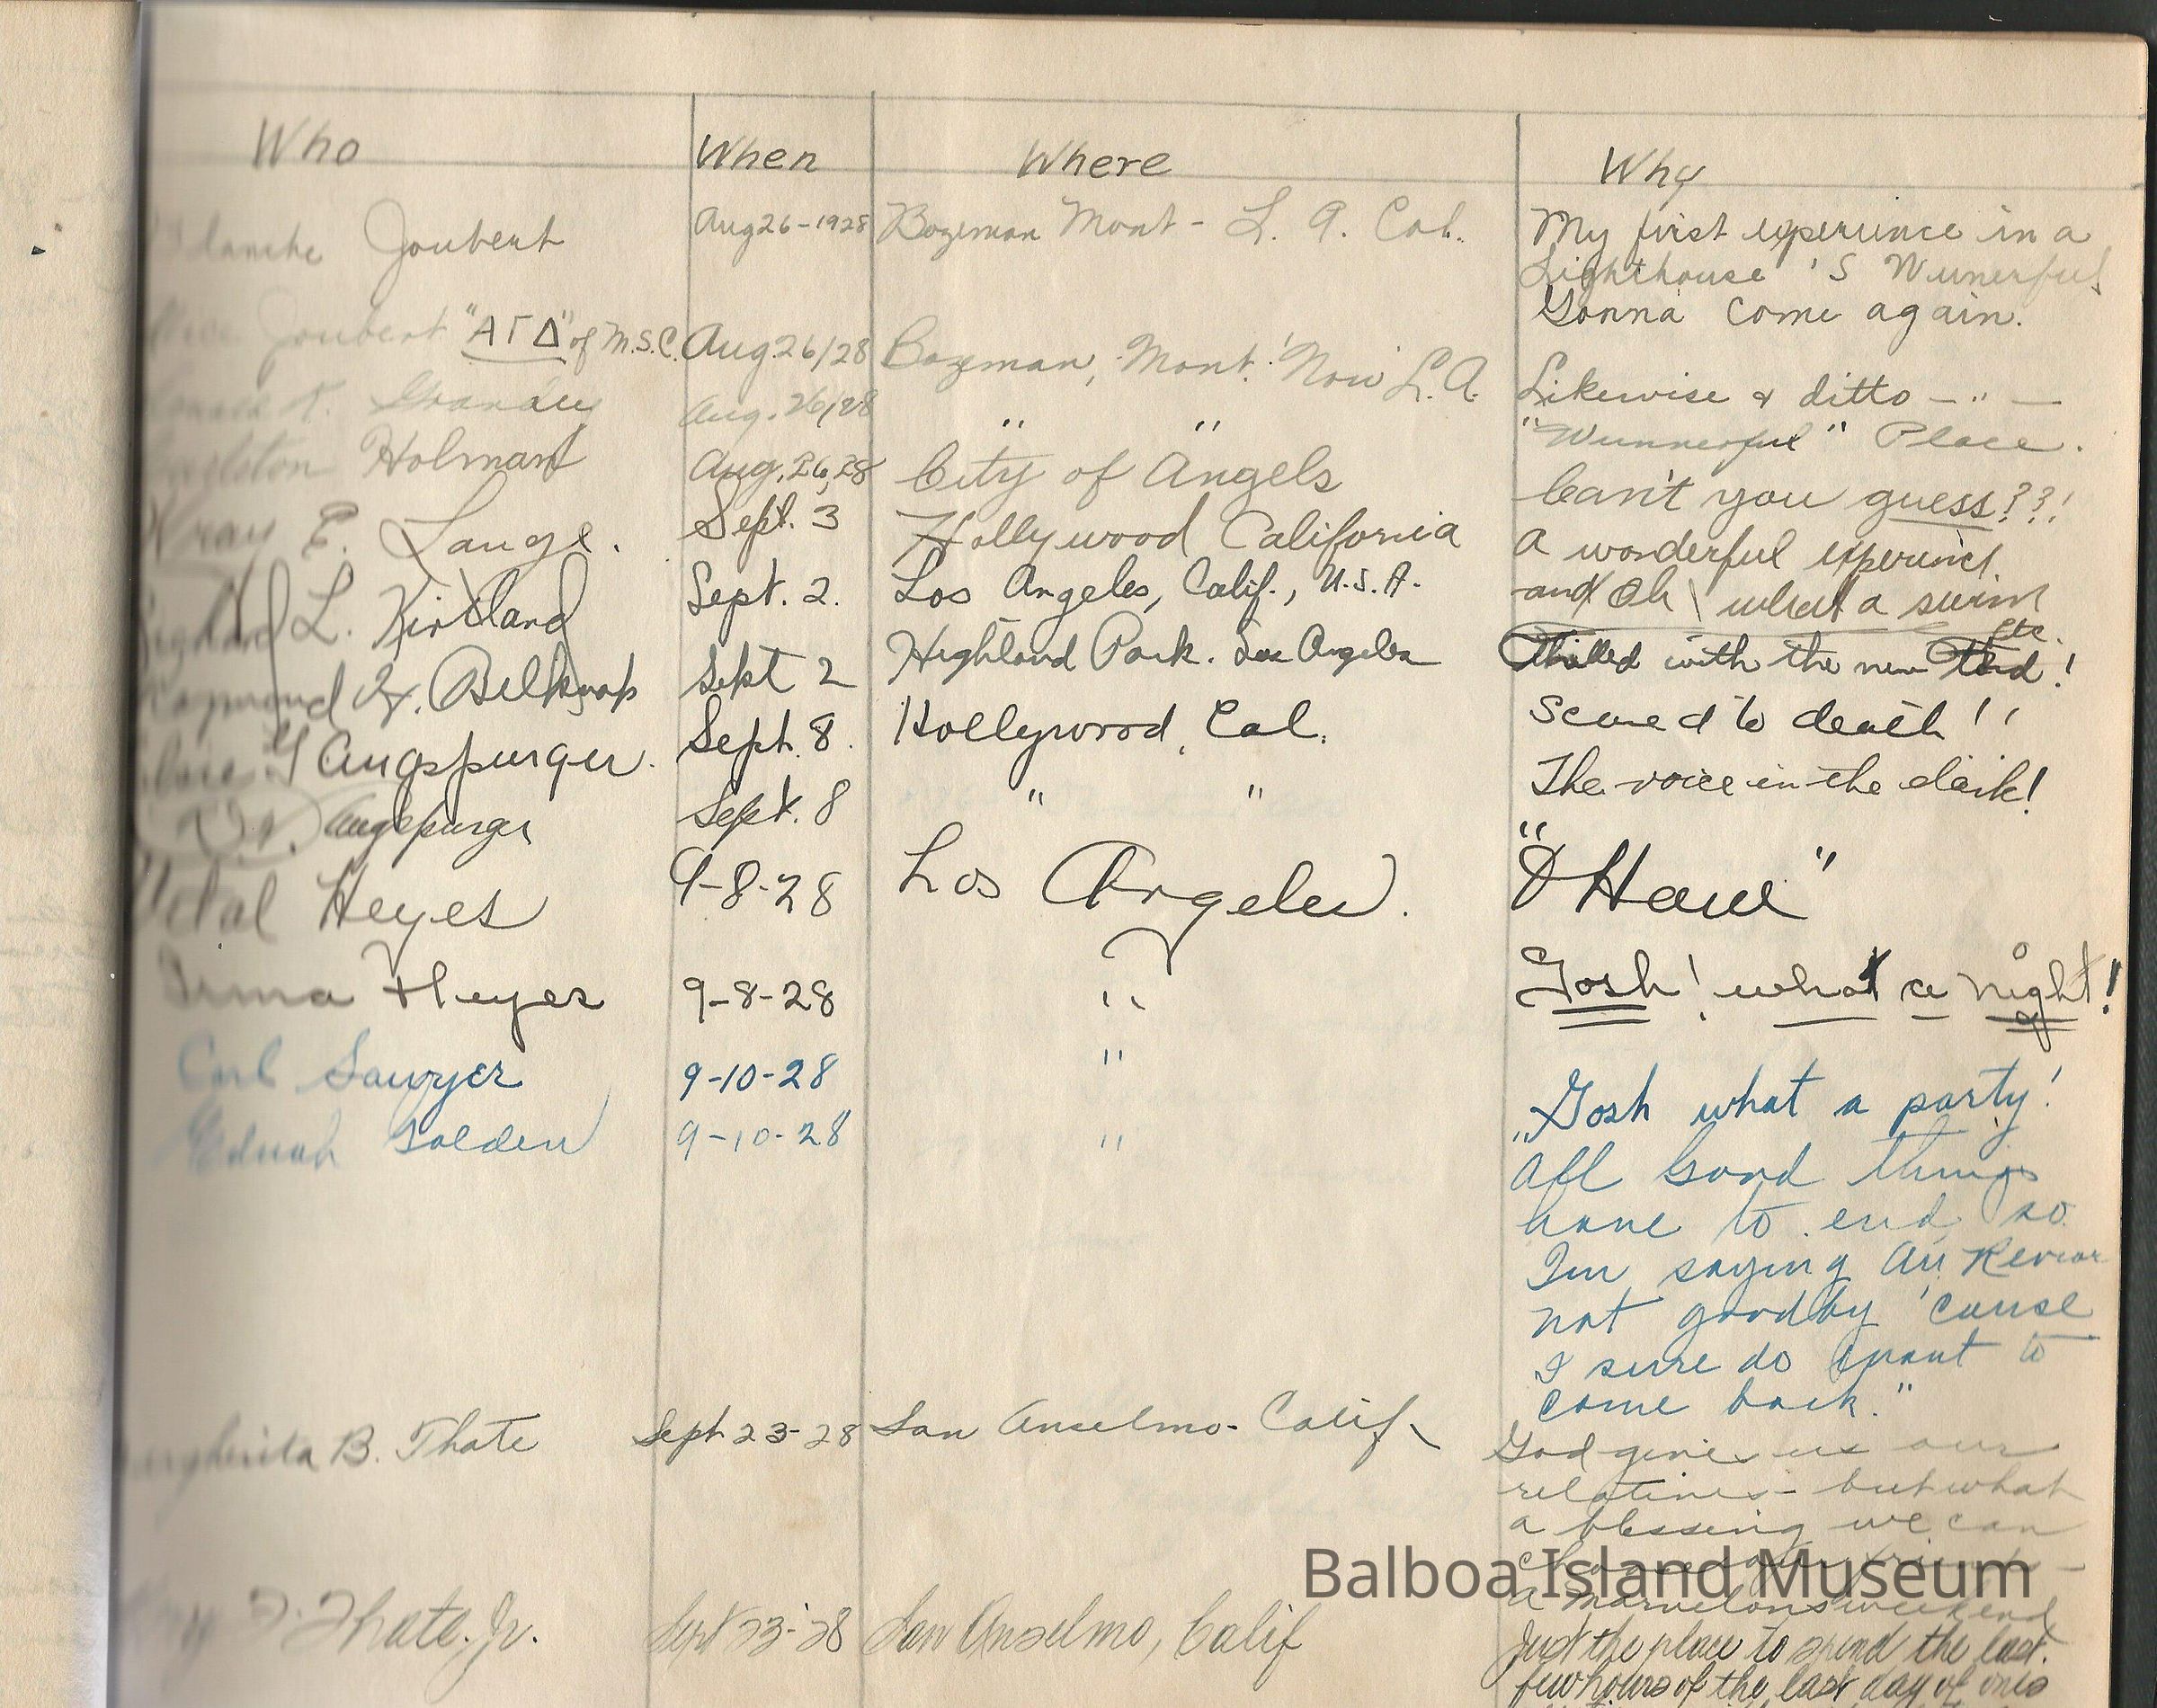 Who When Where Why
Joubert Aug 26-1928 Bozeman Mont - L. A. Cal. My first experience in a
Lighthouse 'S Wunerful
Gonna come again.
Joubert "ΑΓΔ" of M.S.C. Aug 26/28 Bozeman, Mont. Now L.A. Likewise & ditto — " —
Aug. 26/28 " " "Wunnerful" Place.
Holman Aug, 26, 28 City of Angels Can't you guess??!
Wray E. Lange. Sept. 3 Hollywood California A wonderful experience.
and Oh! what a swim
etc.
L. Kirtland Sept. 2. Los Angeles, Calif., U.S.A.
Raymond Belknap Sept 2 Highland Park. Los Angeles Thrilled with the new !
Augspurger. Sept. 8. Hollywood, Cal. Scared to death!!
Augspurger Sept. 8 " " The voice in the dark!
Heyes 9-8-28 Los Angeles. "
Irma Heyes 9-8-28 " Gosh! what a night!
Carl Sawyer 9-10-28 " "Gosh what a party!
Ednah Golden 9-10-28 " "All Good things
have to end, so
I'm saying Au Revoir
not goodby 'cause
I sure do want to
come back."
B. Thate Sept 23-28 San Anselmo - Calif. God gives us our
relatives - but what
a blessing we can
Balboa Island Museum
a marvelous weekend
Thate. Jr. Sept 23-'28 San Anselmo, Calif Just the place to spend the last
few hours of the last day of ones